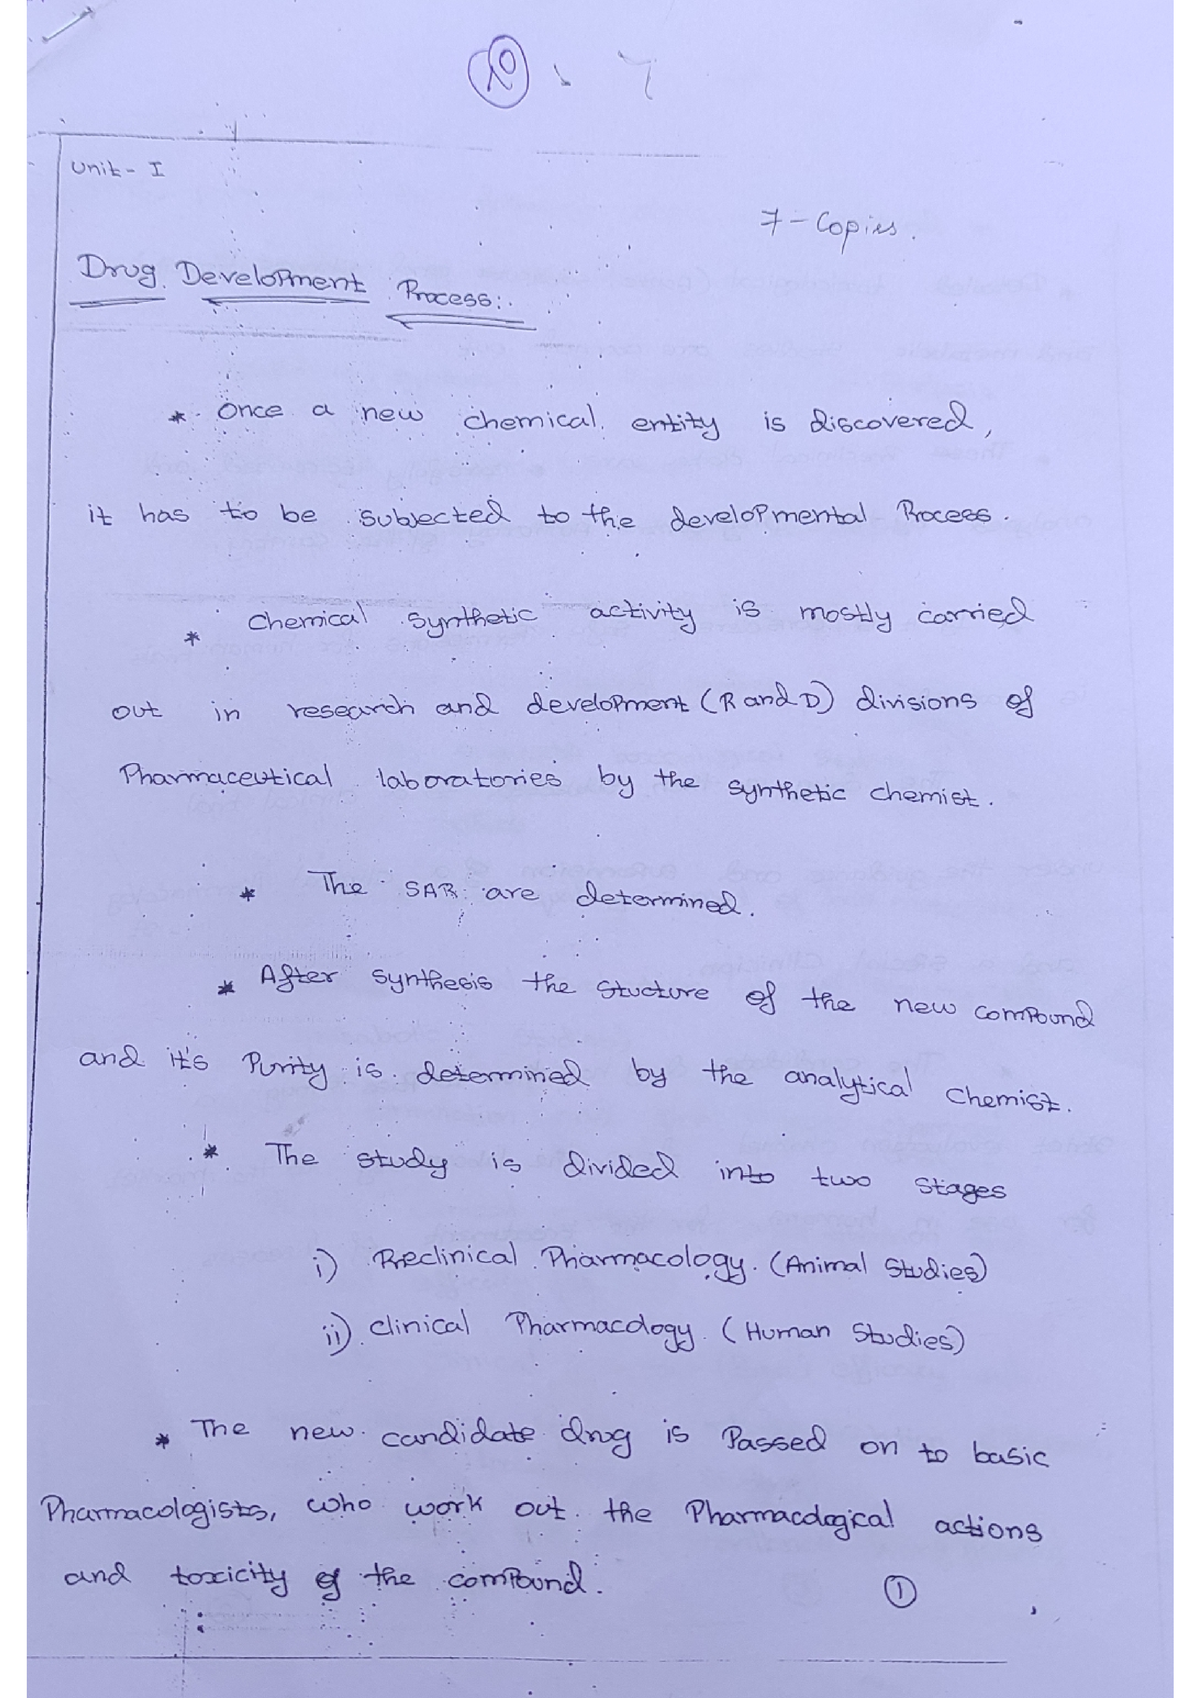 Unit - I
7 - Copies.
Drug Development Process:.
* Once a new chemical entity is discovered,
it has to be subjected to the developmental Process.
* Chemical synthetic activity is mostly carried
out in research and development (R and D) divisions of
Pharmaceutical laboratories by the synthetic chemist.
* The SAR are determined.
* After synthesis the stucture of the new compound
and it's Purity is determined by the analytical chemist.
* The study is divided into two stages
i) Preclinical Pharmacology. (Animal Studies)
ii) Clinical Pharmacology. (Human Studies)
* The new candidate drug is Passed on to basic
Pharmacologists, who work out the Pharmacological actions
and toxicity of the compound.
1